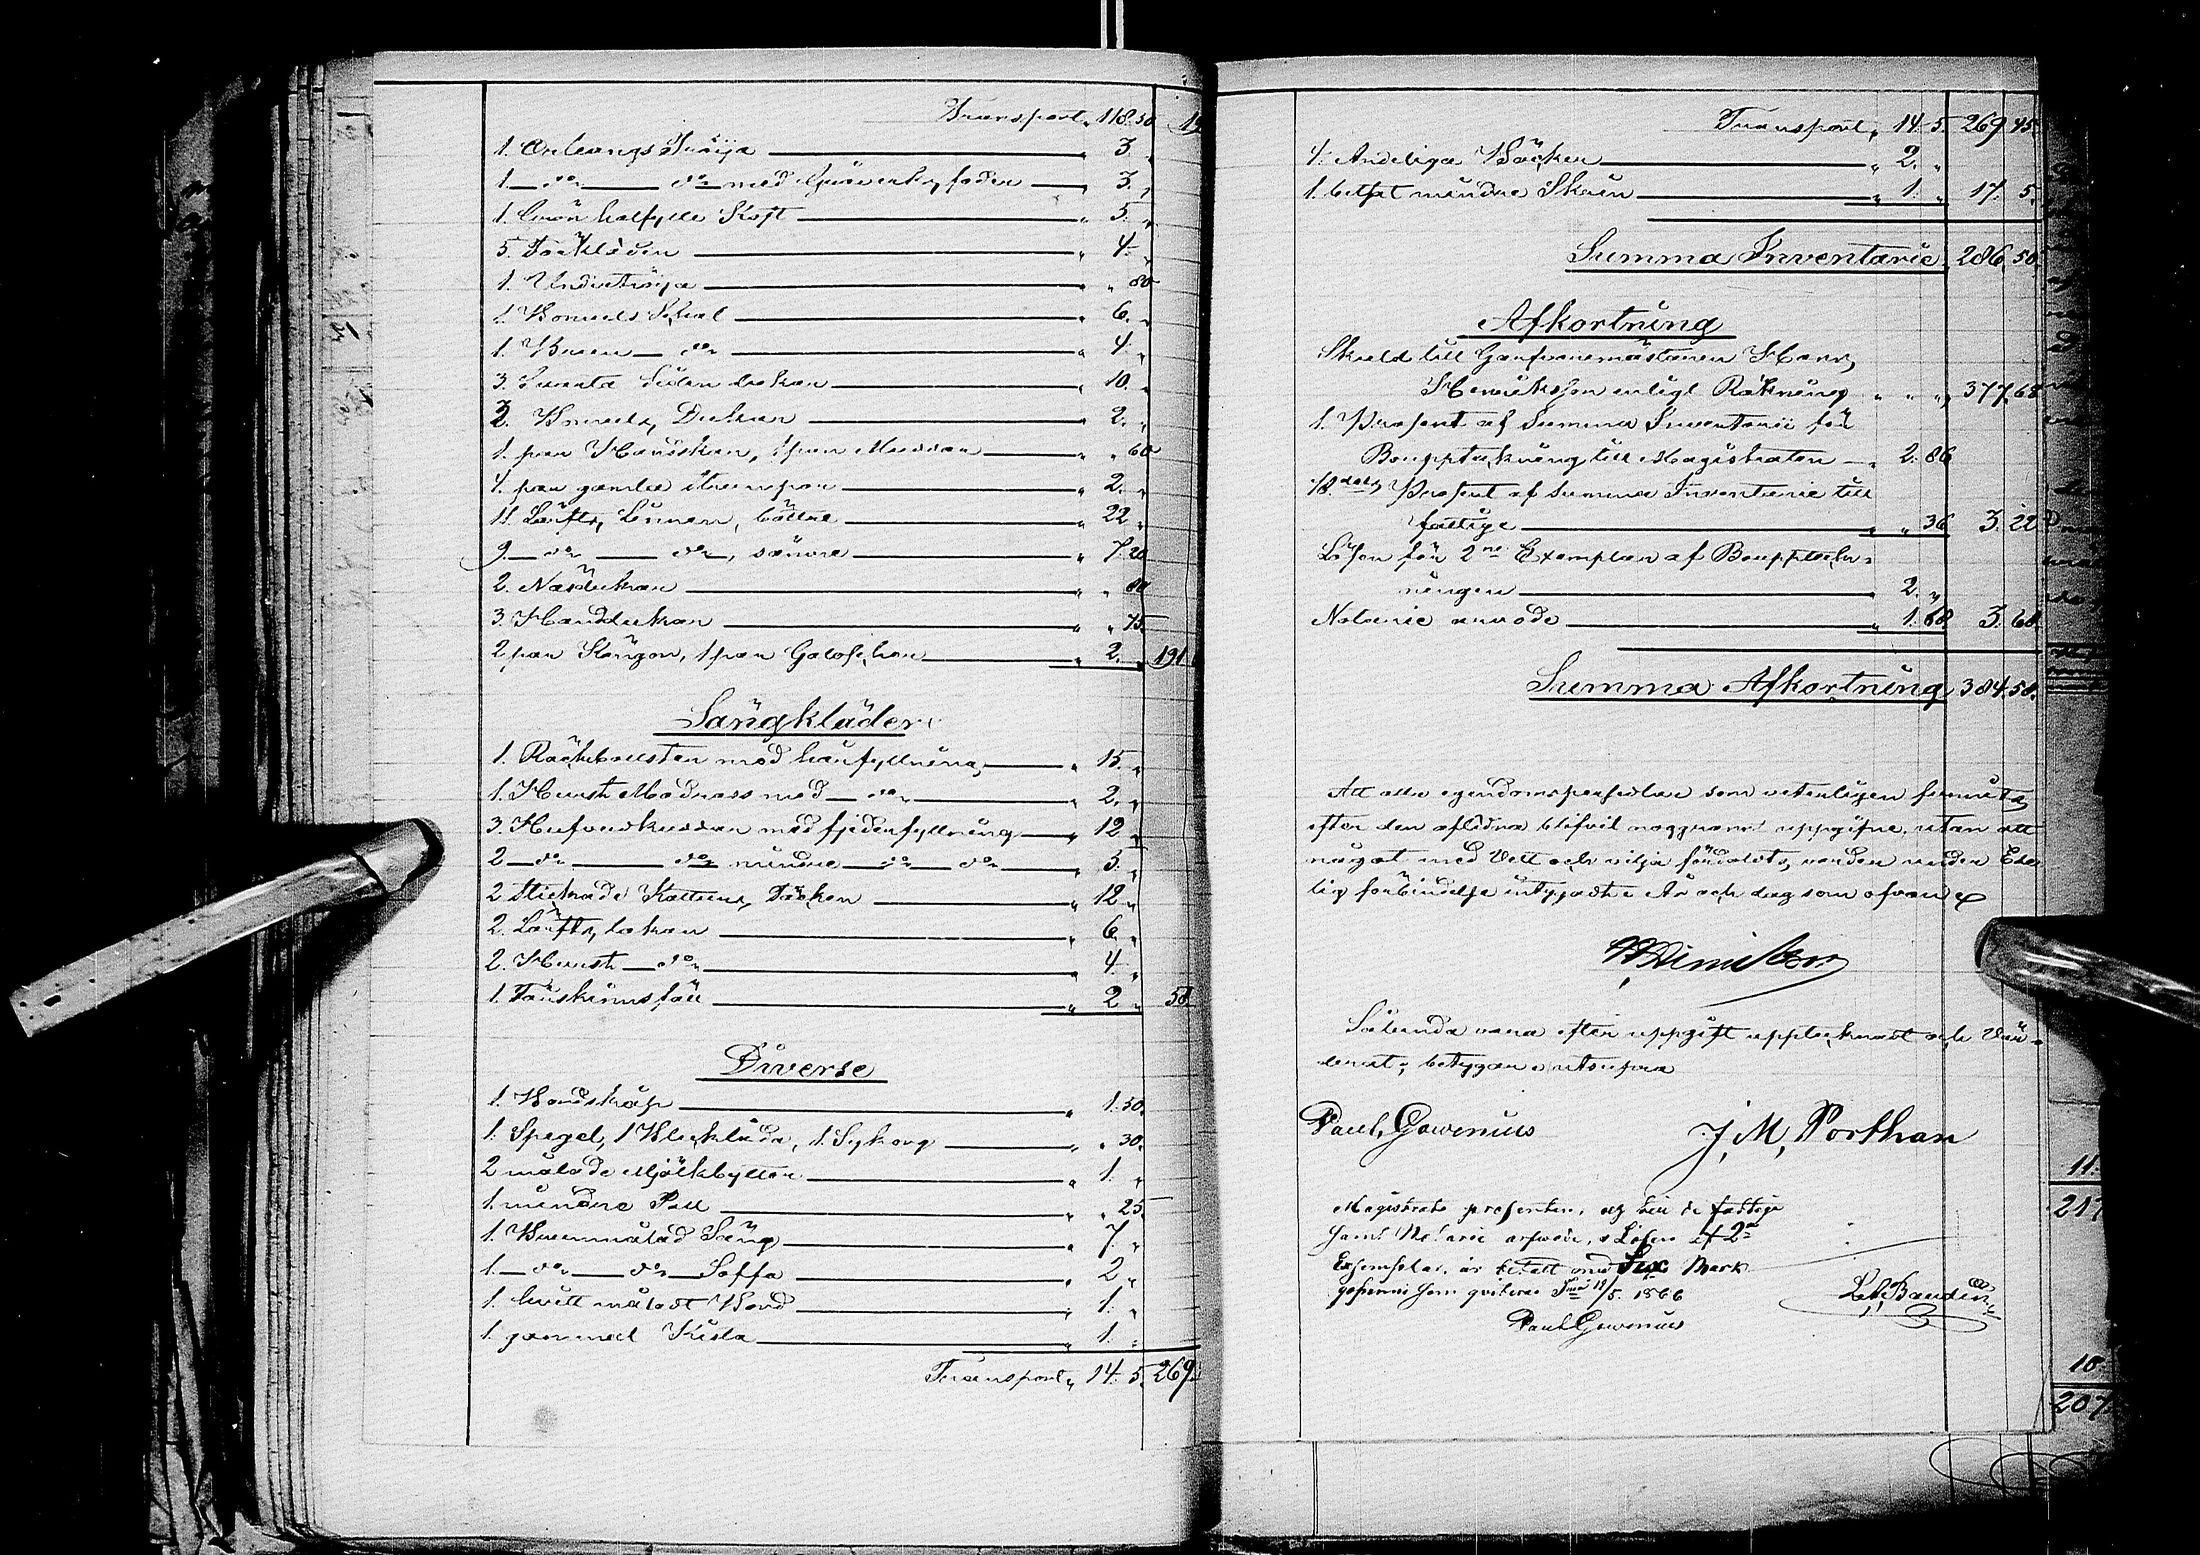 Transport " 118. 50 19
1. Orleangs Tröija " 3. "
1. do do med Gråverks foder " 3. "
1. Grön halfylle Kjoft " 5. "
5. Förkläden " 4. "
1. Undertröija " " 80
1. Bomuls Schal " 6. "
1. Brun do " 4. "
3. Svarta Siden dukar " 10. "
3. Bomuls Dukar " 2. "
1. par Handskar, 1 par " " 60
4. par gamla strumpor " 2. "
11. Lärfts Linnen, bättre " 22 "
9. do do, sämre " 7. 20
2. Näsdukar " " 80
3. Handdukar " " 75.
2 par Kängor, 1 par Galoscher " 2. " 191
Sängkläder
1. Räckbolster med hårfyllning " 15. "
1. Hurst Madrass med do " 2. "
3. Hufvudkuddar med fjederfyllning " 12 "
2 do do mindre do do " 5. "
2 stickade Kattuns Täcken " 12 "
2. Lärfts lakan " 6. "
2. Hurst do " 4. "
1. Fårskinnsfäll " 2 " 58.
Diverse
1. Bordskåp " 1. 50.
1. Spegel, 1 Blecklåda, 1 Sykorg " " 30.
2 målade Mjölkbyttor " 1. "
1. mindre Pall " " 25.
1. Brunmålad Säng " 7. "
1. do do Soffa " 2 "
1. hvitt måladt Bord " 1. "
1. gammal Kista " 1. "
Transport " 14. 5. 269.
Transport " 14. 5. 269. 45.
4. Andeliga Böcker " 2. "
1. betsat mindre Skrin " 1. " 17. 5.
Summa Inventarie 286. 50.
Afkortning
Skuld till Garfvaremästaren Herr
Henriksson enligt Räkning " " " 377. 68
1. Procent af Summa Inventarii för
Bouppteckning till Magistraten " 2. 86
1/8 dels Procent af Summa Inventarie till
fattige " " 36 3. 22
Lösen för 2ne Exemplar af Bouppteck-
ningen " 2. "
Notarie arvode " 1. 68. 3. 68.
Summa Afkortning 384. 58.
Att alla egendomspersedlar som veterligen funnits
efter den aflidna blifvit noggrant uppgifne, utan att
något med Vett och vilja fördolts, varder under Ede-
lig förbindelse intygadt. År och dag som ofvan
Sålunda vara efter uppgift upptecknadt och Vär-
derat, betygar utsupra
Paul Gowenius J. M. Porthan
Magistrats procenten, och till de fattige
samt Notarie arfvode, & Lösen af 2ne
Exemplar är betalt med Sex Mark
som qviteras 19/5. 1866
Paul Gowenius
11.
217
10.
207.